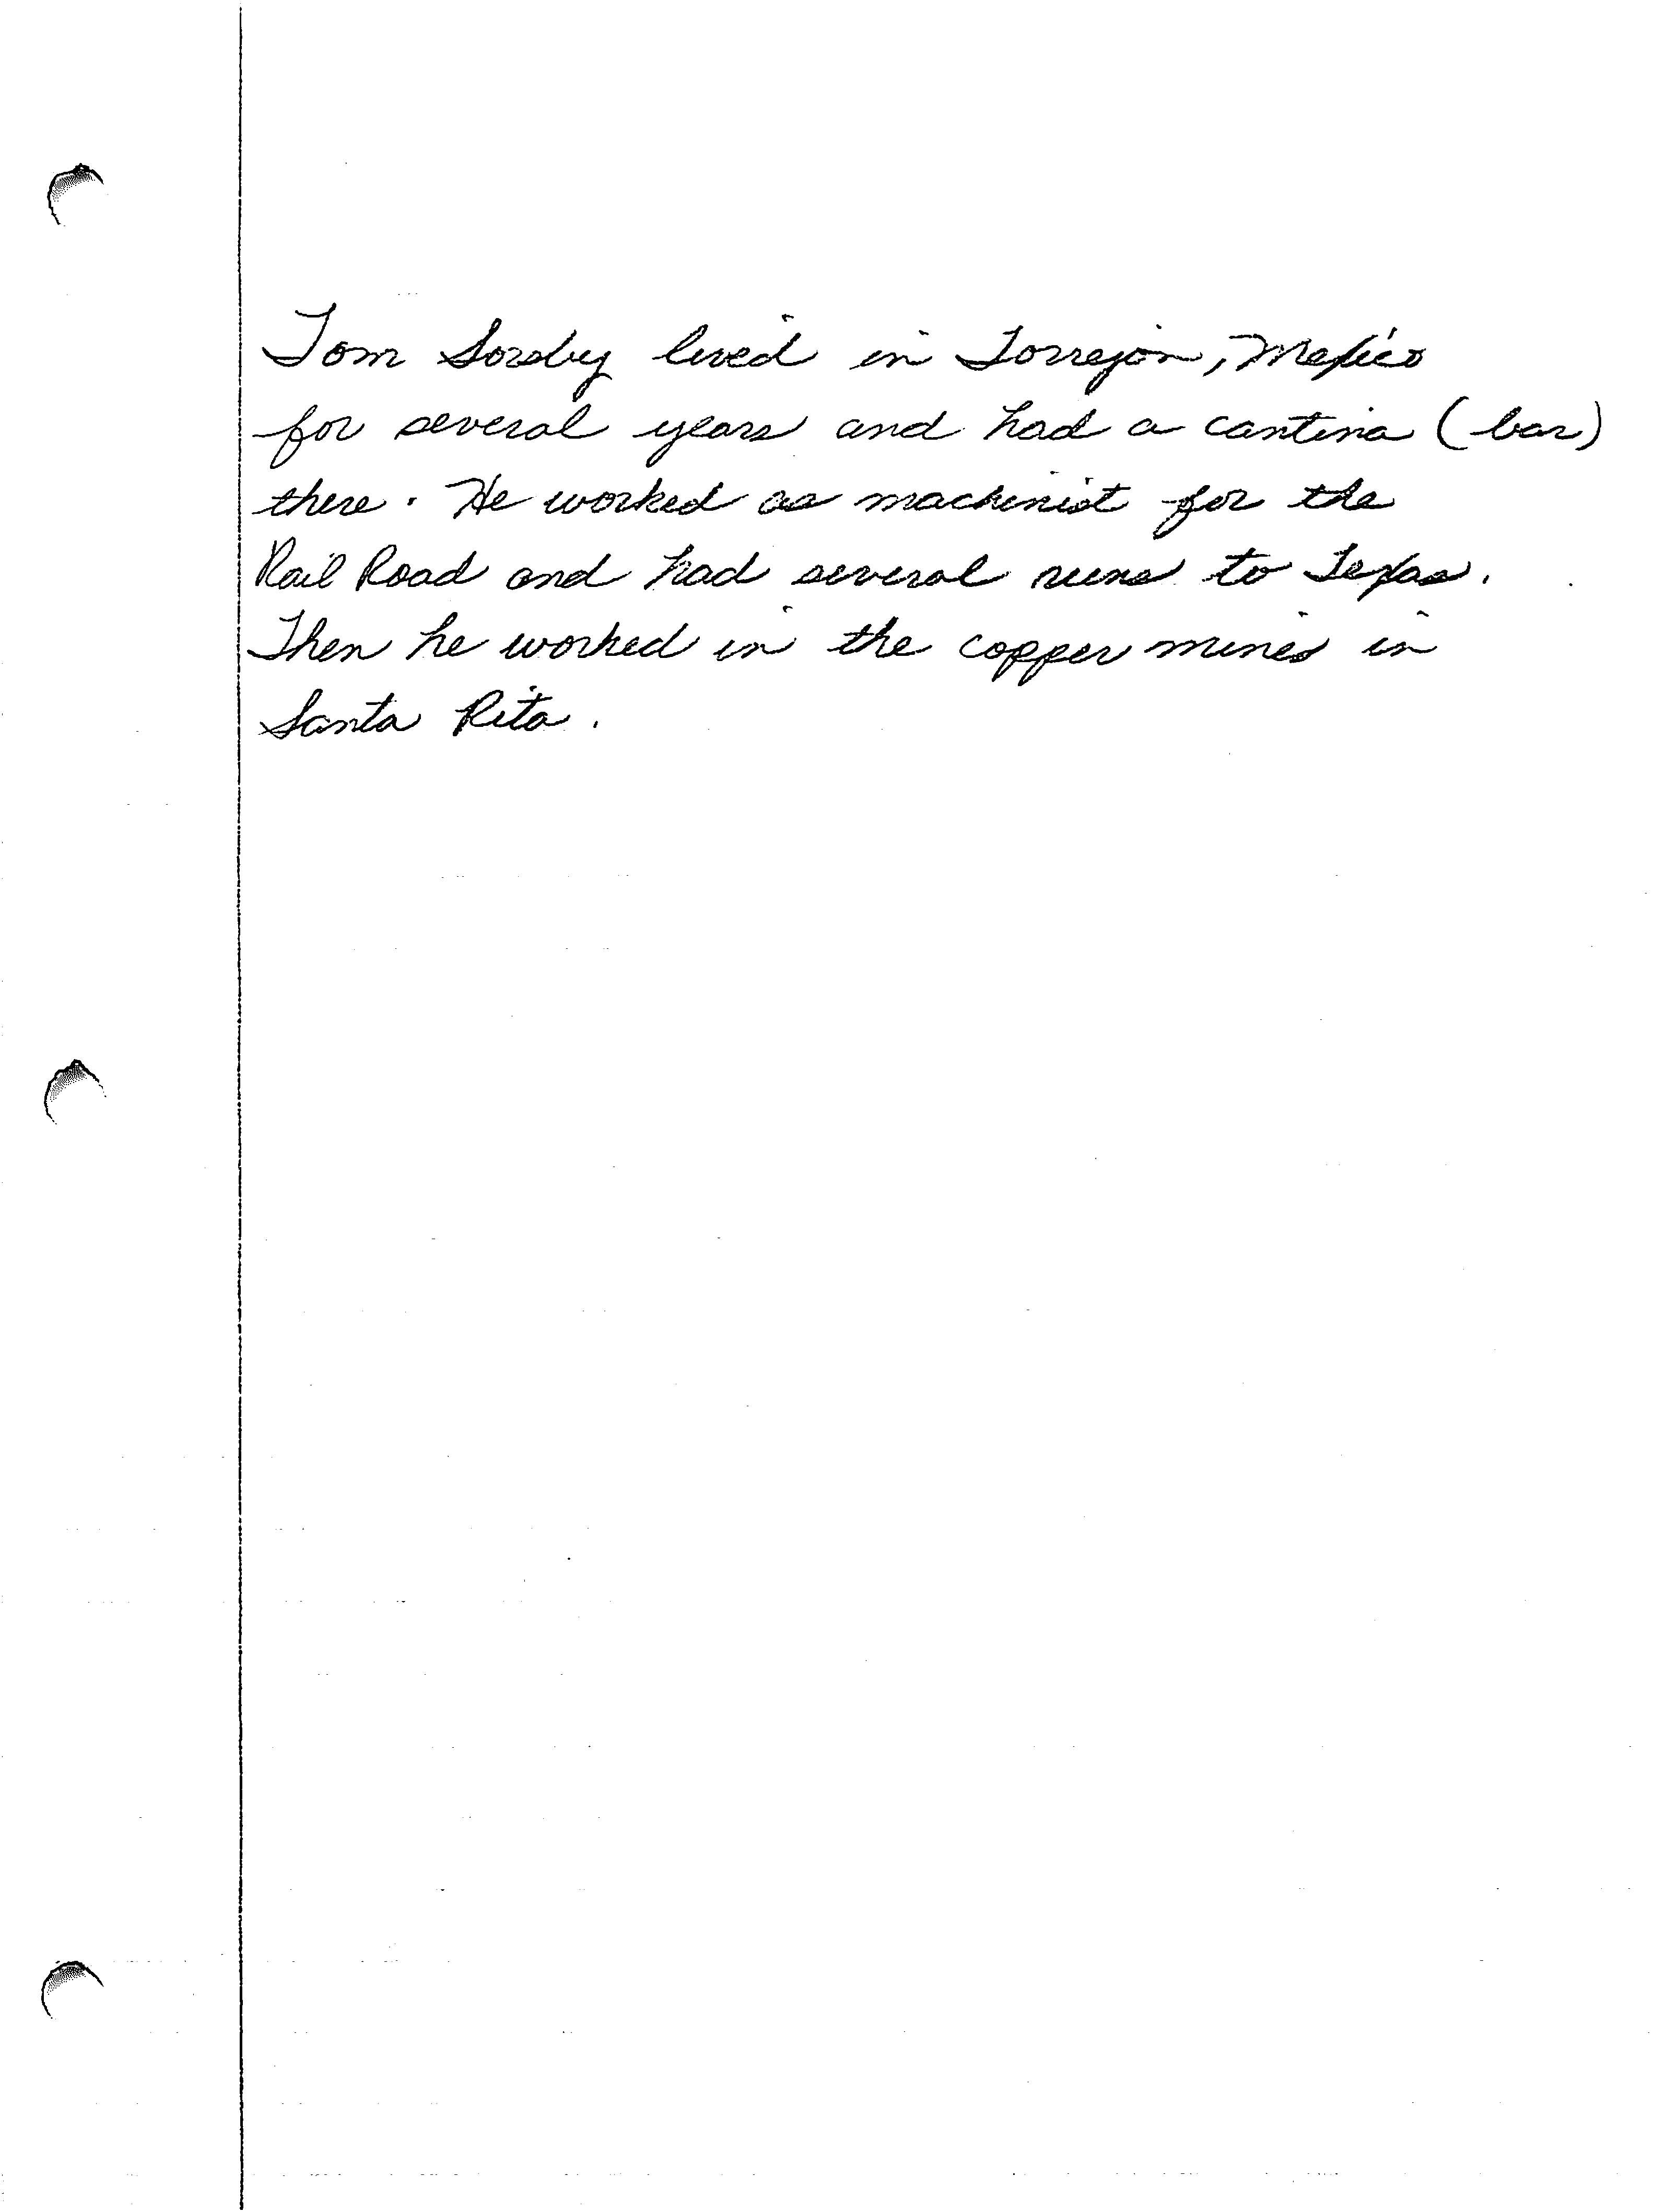 Tom Sorsby lived in Torrejon, Mexico
for several years and had a cantina (bar)
there. He worked as machinist for the
Rail Road and had several runs to Texas.
Then he worked in the copper mines in
Santa Rita.